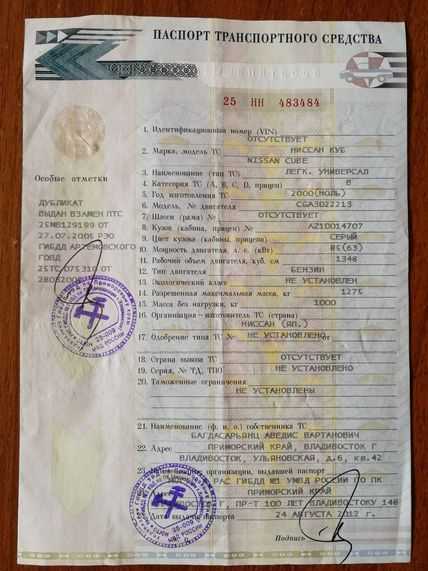 ПАСПОРТ ТРАНСПОРТНОГО СРЕДСТВА
25 НН 483484
Особые отметки
ДУБЛИКАТ
ВЫДАН ВЗАМЕН ПТС
25МВ129199 ОТ
27.07.2005 РЭО
ГИБДД АРТЕМОВСКОГО
ГОВД
25ТС075310 ОТ
1. Идентификационный номер (VIN) ОТСУТСТВУЕТ
2. Марка, модель ТС НИССАН КУБ
NISSAN CUBE
3. Наименование (тип ТС) ЛЕГК. УНИВЕРСАЛ
4. Категория ТС (A, B, C, D, прицеп) B
5. Год изготовления ТС 2000(ИЮЛЬ)
6. Модель, № двигателя CGA3022213
7. Шасси (рама) № ОТСУТСТВУЕТ
8. Кузов (кабина, прицеп) № AZ10014707
9. Цвет кузова (кабины, прицепа) СЕРЫЙ
10. Мощность двигателя, л. с. (кВт) 85(63)
11. Рабочий объем двигателя, куб. см 1348
12. Тип двигателя БЕНЗИН
13. Экологический класс НЕ УСТАНОВЛЕН
14. Разрешенная максимальная масса, кг 1275
15. Масса без нагрузки, кг 1000
16. Организация-изготовитель ТС (страна)
НИССАН (ЯП.)
17. Одобрение типа ТС № НЕ УСТАНОВЛЕНО от
18. Страна вывоза ТС ОТСУТСТВУЕТ
19. Серия, № ТД, ТПО НЕ УСТАНОВЛЕНО
20. Таможенные ограничения
НЕ УСТАНОВЛЕНЫ
21. Наименование (ф. и. о.) собственника ТС
БАГДАСАРЬЯНЦ АВЕДИС ВАРТАНОВИЧ
22. Адрес ПРИМОРСКИЙ КРАЙ, ВЛАДИВОСТОК Г
ВЛАДИВОСТОК, УЛЬЯНОВСКАЯ, д.6, кв.42
23. организации, выдавшей паспорт
РАС ГИБДД №1 УМВД РОССИИ ПО ПК
ПРИМОРСКИЙ КРАЙ
ПР-Т 100 ЛЕТ ВЛАДИВОСТОКУ 148
Дата выдачи паспорта 24 АВГУСТА 2012 г.
Подпись